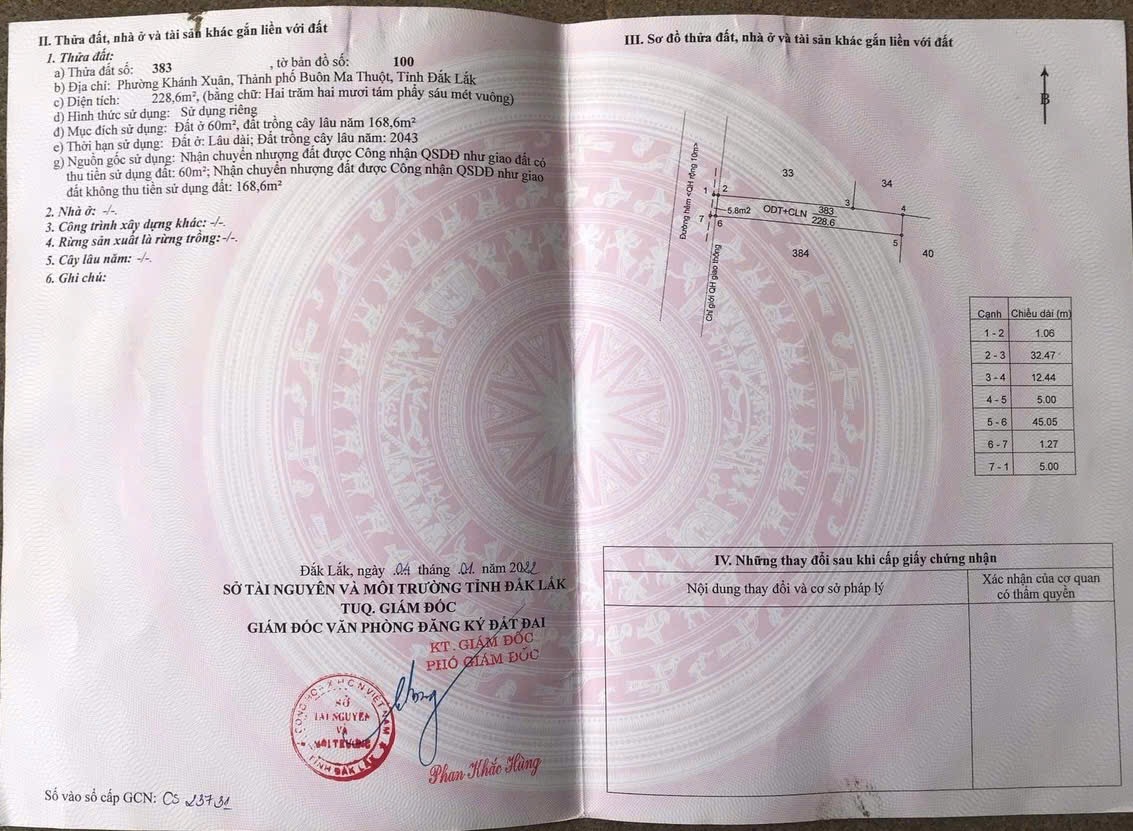 II. Thửa đất, nhà ở và tài sản khác gắn liền với đất
1. Thửa đất:
a) Thửa đất số: 383 , tờ bản đồ số: 100
b) Địa chỉ: Phường Khánh Xuân, Thành phố Buôn Ma Thuột, Tỉnh Đắk Lắk
c) Diện tích: 228,6m², (bằng chữ: Hai trăm hai mươi tám phẩy sáu mét vuông)
d) Hình thức sử dụng: Sử dụng riêng
đ) Mục đích sử dụng: Đất ở 60m², đất trồng cây lâu năm 168,6m²
e) Thời hạn sử dụng: Đất ở: Lâu dài; Đất trồng cây lâu năm: 2043
g) Nguồn gốc sử dụng: Nhận chuyển nhượng đất được Công nhận QSDĐ như giao đất có
thu tiền sử dụng đất: 60m²; Nhận chuyển nhượng đất được Công nhận QSDĐ như giao
đất không thu tiền sử dụng đất: 168,6m²
2. Nhà ở: -/-.
3. Công trình xây dựng khác: -/-.
4. Rừng sản xuất là rừng trồng: -/-.
5. Cây lâu năm: -/-.
6. Ghi chú:
Đắk Lắk, ngày 04 tháng 01 năm 2022
SỞ TÀI NGUYÊN VÀ MÔI TRƯỜNG TỈNH ĐẮK LẮK
TUQ. GIÁM ĐỐC
GIÁM ĐỐC VĂN PHÒNG ĐĂNG KÝ ĐẤT ĐAI
KT. GIÁM ĐỐC
PHÓ GIÁM ĐỐC
CỘNG HÒA X.H.C.N VIỆT NAM
SỞ
TÀI NGUYÊN
VÀ
MÔI TRƯỜNG
TỈNH ĐẮK LẮK
Phan Khắc Hùng
Số vào sổ cấp GCN: CS 23731
III. Sơ đồ thửa đất, nhà ở và tài sản khác gắn liền với đất
B
Đường hẻm <QH rộng 10m>
Chỉ giới QH giao thông
33
34
1
2
3
4
5.8m2
ODT+CLN
383
228.6
7
6
5
384
40
Cạnh Chiều dài (m)
1 - 2 1.06
2 - 3 32.47
3 - 4 12.44
4 - 5 5.00
5 - 6 45.05
6 - 7 1.27
7 - 1 5.00
IV. Những thay đổi sau khi cấp giấy chứng nhận
Nội dung thay đổi và cơ sở pháp lý
Xác nhận của cơ quan
có thẩm quyền